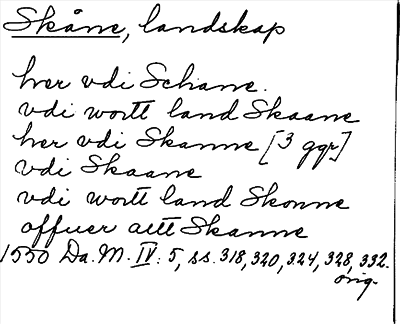 Skåne, landskap
her vdi Schane.
vdi wortt land Skaane
her vdi Skanne [3 ggr]
vdi Skaane
vdi wortt land Skonne
offuer altt Skanne
1550 Da. M. IV: 5, ss. 318, 320, 324, 328, 332.
orig.